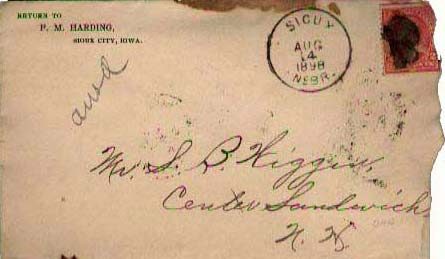 RETURN TO
F. M. HARDING,
SIOUX CITY, IOWA.
SIOUX
AUG
14
1898
NEBR.
ansd
Mr. S. B. Wiggin,
Center Sandwich,
N. H.